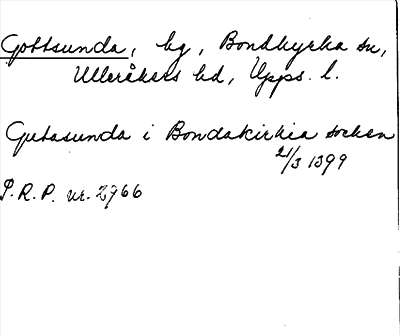 Gottsunda, by, Bondkyrka sn,
Ulleråkers hd, Upps. l.
Gutasunda i Bondakirkia socken
21/3 1399
S.R.P. nr. 2966